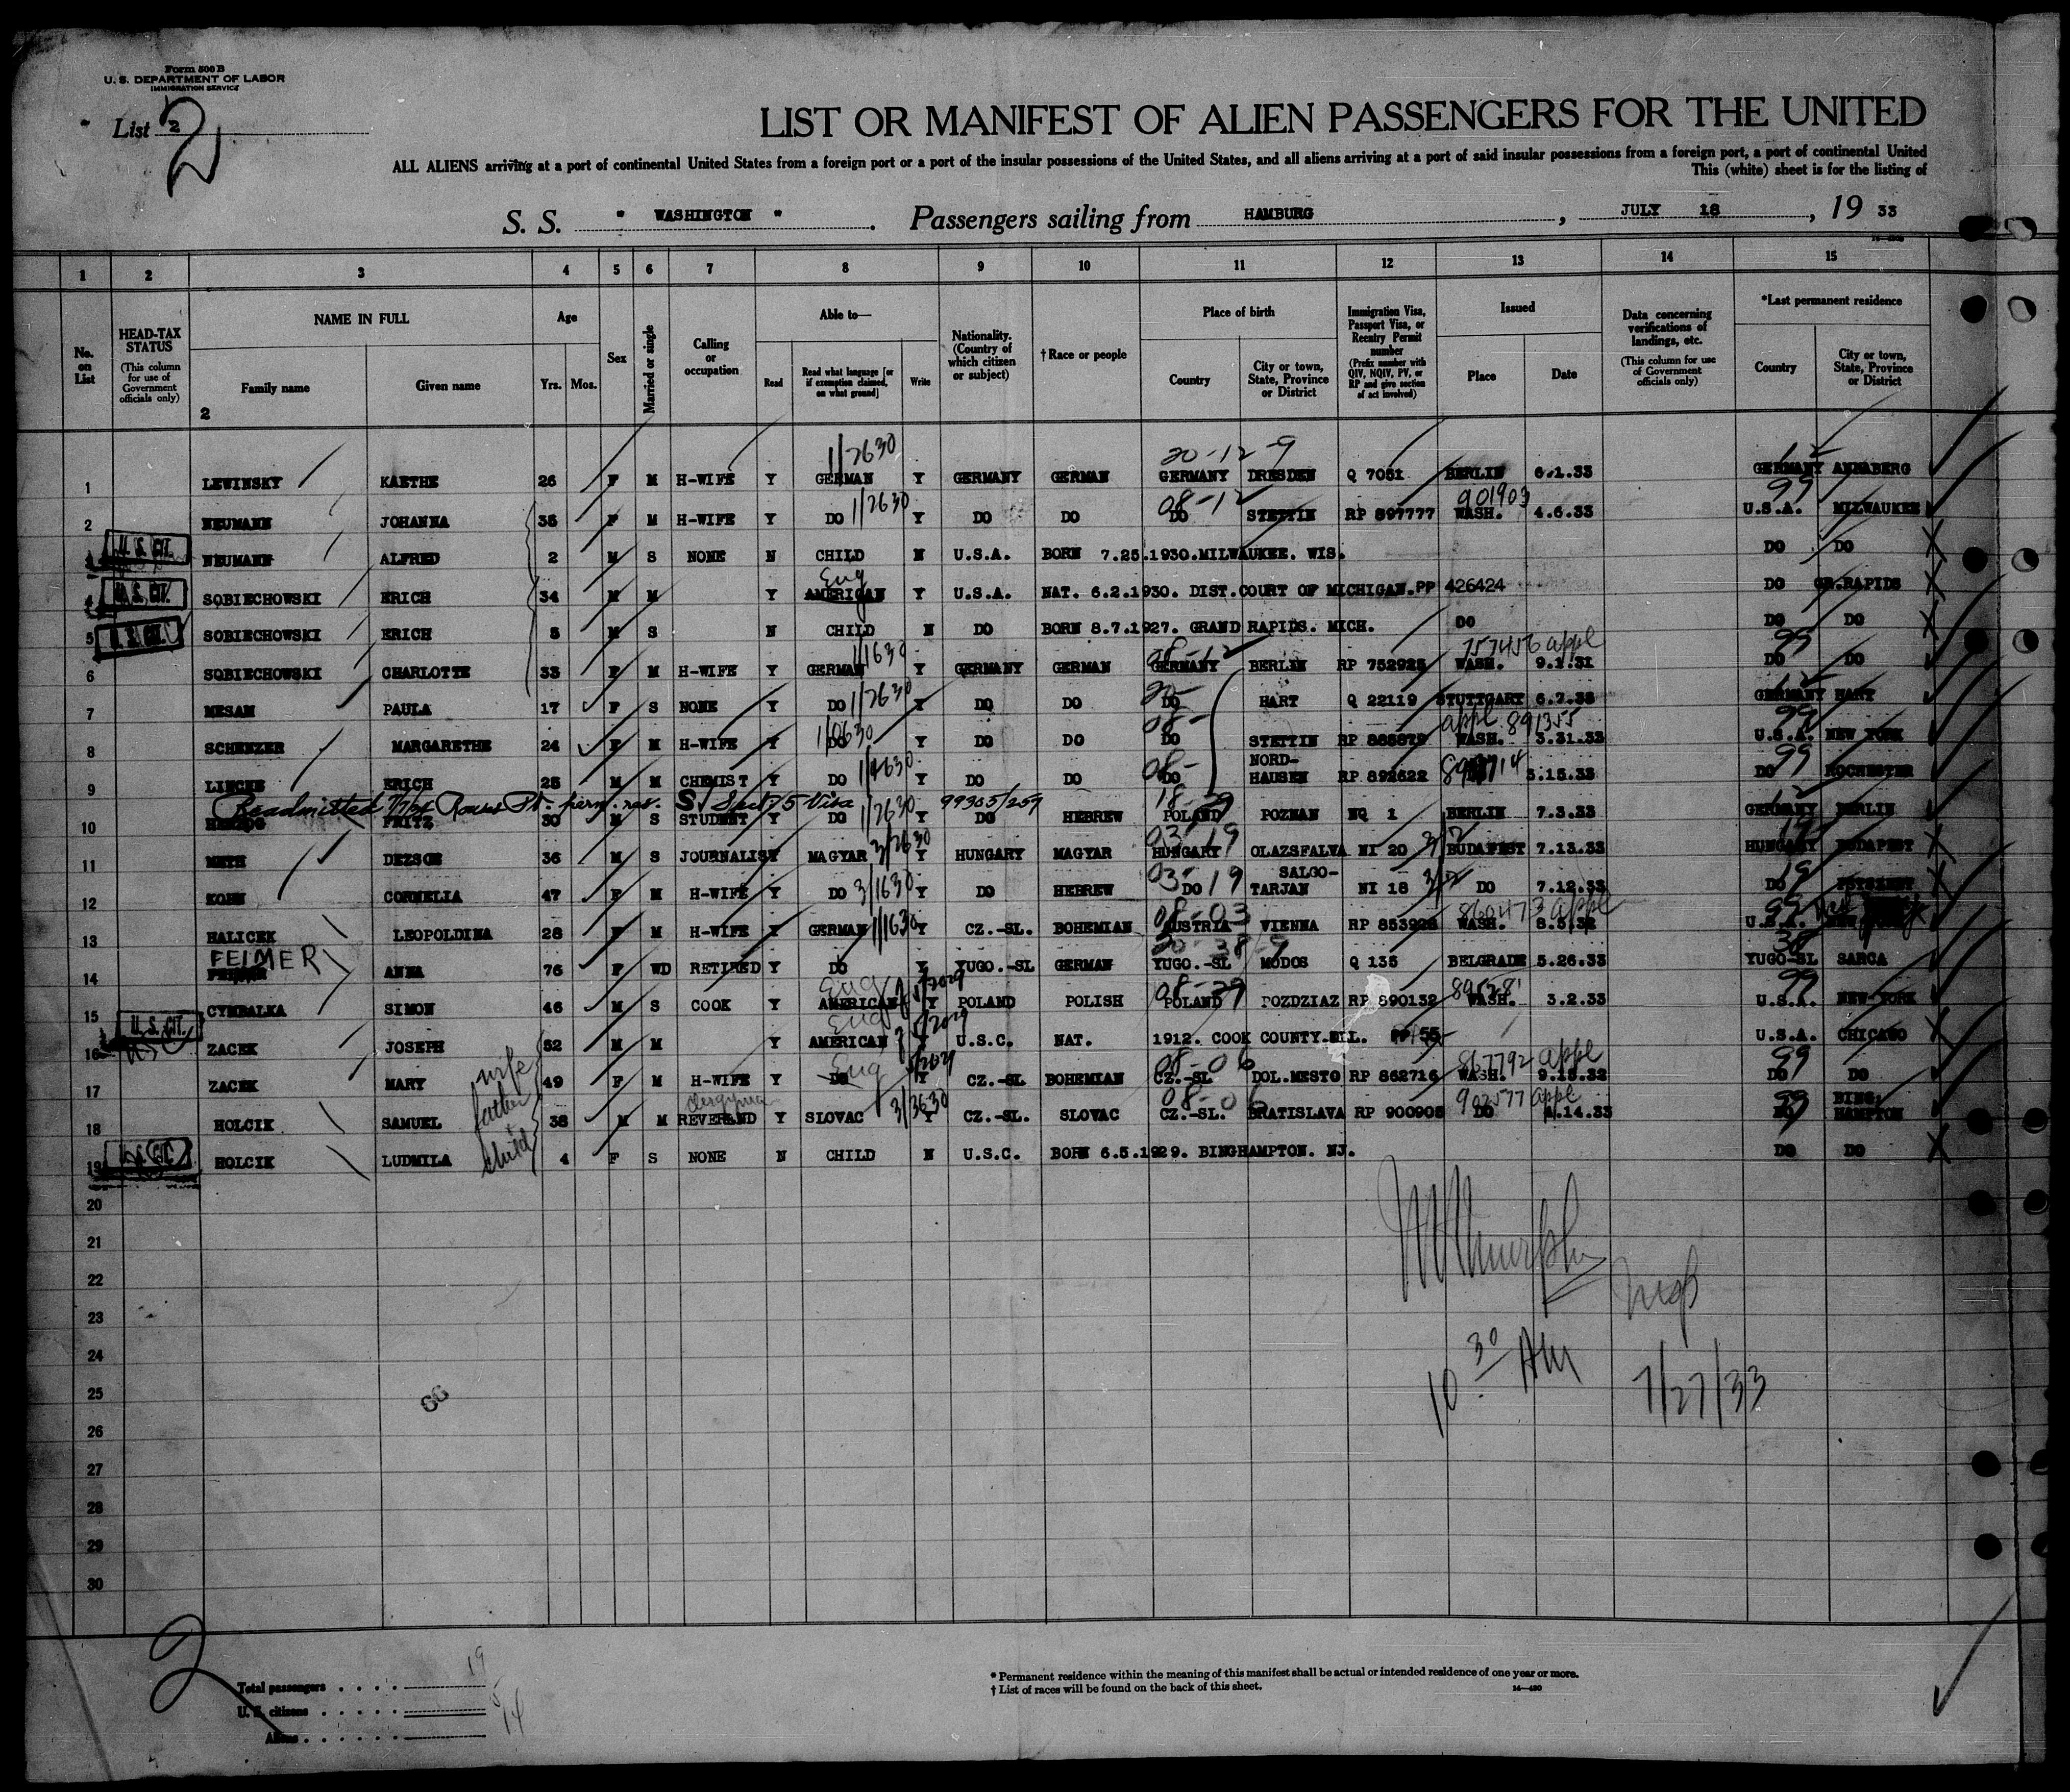 Form 500 B
U. S. DEPARTMENT OF LABOR
IMMIGRATION SERVICE
List 2
2
LIST OR MANIFEST OF ALIEN PASSENGERS FOR THE UNITED
ALL ALIENS arriving at a port of continental United States from a foreign port or a port of the insular possessions of the United States, and all aliens arriving at a port of said insular possessions from a foreign port, a port of continental United
This (white) sheet is for the listing of
S. S. " WASHINGTON " . Passengers sailing from HAMBURG , JULY 18 , 19 33
1 2 3 4 5 6 7 8 9 10 11 12 13 14 15
No. on List
HEAD-TAX STATUS (This column for use of Government officials only)
NAME IN FULL
Family name
Given name
2
Age
Yrs. Mos.
Sex
Married or single
Calling or occupation
Able to—
Read
Read what language [or if exemption claimed, on what ground]
Write
Nationality. (Country of which citizen or subject)
† Race or people
Place of birth
Country
City or town, State, Province or District
Immigration Visa, Passport Visa, or Reentry Permit number (Prefix number with QIV, NQIV, PV, or RP and give section of act involved)
Issued
Place
Date
Data concerning verifications of landings, etc. (This column for use of Government officials only)
*Last permanent residence
Country
City or town, State, Province or District
1/2630 20-12-9 12
1 LEWINSKY KAETHE 26 F M H-WIFE Y GERMAN Y GERMANY GERMAN GERMANY DRESDEN Q 7051 BERLIN 6.1.33 GERMANY ANNABERG
1/2630 08-12 901903 99
2 NEUMANN JOHANNA 35 F M H-WIFE Y DO Y DO DO DO STETTIN RP 897777 WASH. 4.6.33 U.S.A. MILWAUKEE
U.S. CIT.
3 NEUMANN ALFRED 2 M S NONE N CHILD N U.S.A. BORN 7.25.1930.MILWAUKEE. WIS. DO DO
U.S. CIT. Eng
4 SOBIECHOWSKI ERICH 34 M M Y AMERICAN Y U.S.A. NAT. 6.2.1930. DIST.COURT OF MICHIGAN.PP 426424 DO GR.RAPIDS
U.S. CIT.
5 SOBIECHOWSKI ERICH 5 M S N CHILD N DO BORN 8.7.1927. GRAND RAPIDS. MICH. DO DO DO
1/1630 08-12 757456 appl 99
6 SOBIECHOWSKI CHARLOTTE 33 F M H-WIFE Y GERMAN Y GERMANY GERMAN GERMANY BERLIN RP 752925 WASH. 9.1.31 DO DO
1/2630 20- 12
7 MESAM PAULA 17 F S NONE Y DO Y DO DO DO HART Q 22119 STUTTGART 6.7.33 GERMANY HART
1/0630 08- appl 891355 99
8 SCHENZER MARGARETHE 24 F M H-WIFE Y DO Y DO DO DO STETTIN RP 885879 WASH. 3.31.33 U.S.A. NEW YORK
1/4630 08- 99
9 LINCKE ERICH 25 M M CHEMIST Y DO Y DO DO DO NORD-HAUSEN RP 892622 3.15.33 DO ROCHESTER
Readmitted Rouses Pt. perm. res. S. Sect 5 Visa 1/2630 99305/259 18-29 12
10 HERZOG FRITZ 30 M S STUDENT Y DO Y DO HEBREW POLAND POZNAN NQ 1 BERLIN 7.3.33 GERMANY BERLIN
3/2630 03-19 3/2 19
11 METH DEZSOE 36 M S JOURNALIST Y MAGYAR Y HUNGARY MAGYAR HUNGARY OLAZSFALVA NI 20 BUDAPEST 7.13.33 HUNGARY BUDAPEST
3/1630 03-19 3/2 19
12 KOHN CORNELIA 47 F M H-WIFE Y DO Y DO HEBREW DO SALGO-TARJAN NI 18 DO 7.12.33 DO
1/1630 08-03 860473 appl 99
13 HALICEK LEOPOLDINA 28 F M H-WIFE Y GERMAN Y CZ.-SL. BOHEMIAN AUSTRIA VIENNA RP 853928 WASH. 8.5.32 U.S.A.
FELMER 20-38-9 38
14 ANNA 76 F WD RETIRED Y DO Y YUGO.-SL GERMAN YUGO.-SL MODOS Q 135 BELGRADE 5.26.33 YUGO-SL SARCA
Eng 5/2029 08-29 99
15 CYMBALKA SIMON 46 M S COOK Y AMERICAN Y POLAND POLISH POLAND POZDZIAZ RP 890132 WASH. 3.2.33 U.S.A. NEW YORK
U.S. CIT. Eng 5/2029
16 ZACEK JOSEPH 52 M M Y AMERICAN Y U.S.C. NAT. 1912. COOK COUNTY.ILL. U.S.A. CHICAGO
wife Eng 5/2029 08-06 867792 appl 99
17 ZACEK MARY 49 F M H-WIFE Y DO Y CZ.-SL BOHEMIAN CZ.-SL DOL.MESTO RP 862716 WASH. 9.15.32 DO DO
father clergyman 3/3630 08-06 902577 appl 99
18 HOLCIK SAMUEL 38 M M REVEREND Y SLOVAC Y CZ.-SL. SLOVAC CZ.-SL. BRATISLAVA RP 900905 DO 4.14.33 DO BING. HAMPTON
U.S. CIT. + child
19 HOLCIK LUDMILA 4 F S NONE N CHILD N U.S.C. BORN 6.5.1929. BINGHAMPTON. NJ. DO DO
20
21
22
23
24
25
26
27
28
29
30
10 30 AM
7/27/33
2
Total passengers 19
U. S. citizens 5
Aliens 14
* Permanent residence within the meaning of this manifest shall be actual or intended residence of one year or more.
† List of races will be found on the back of this sheet. 14—480